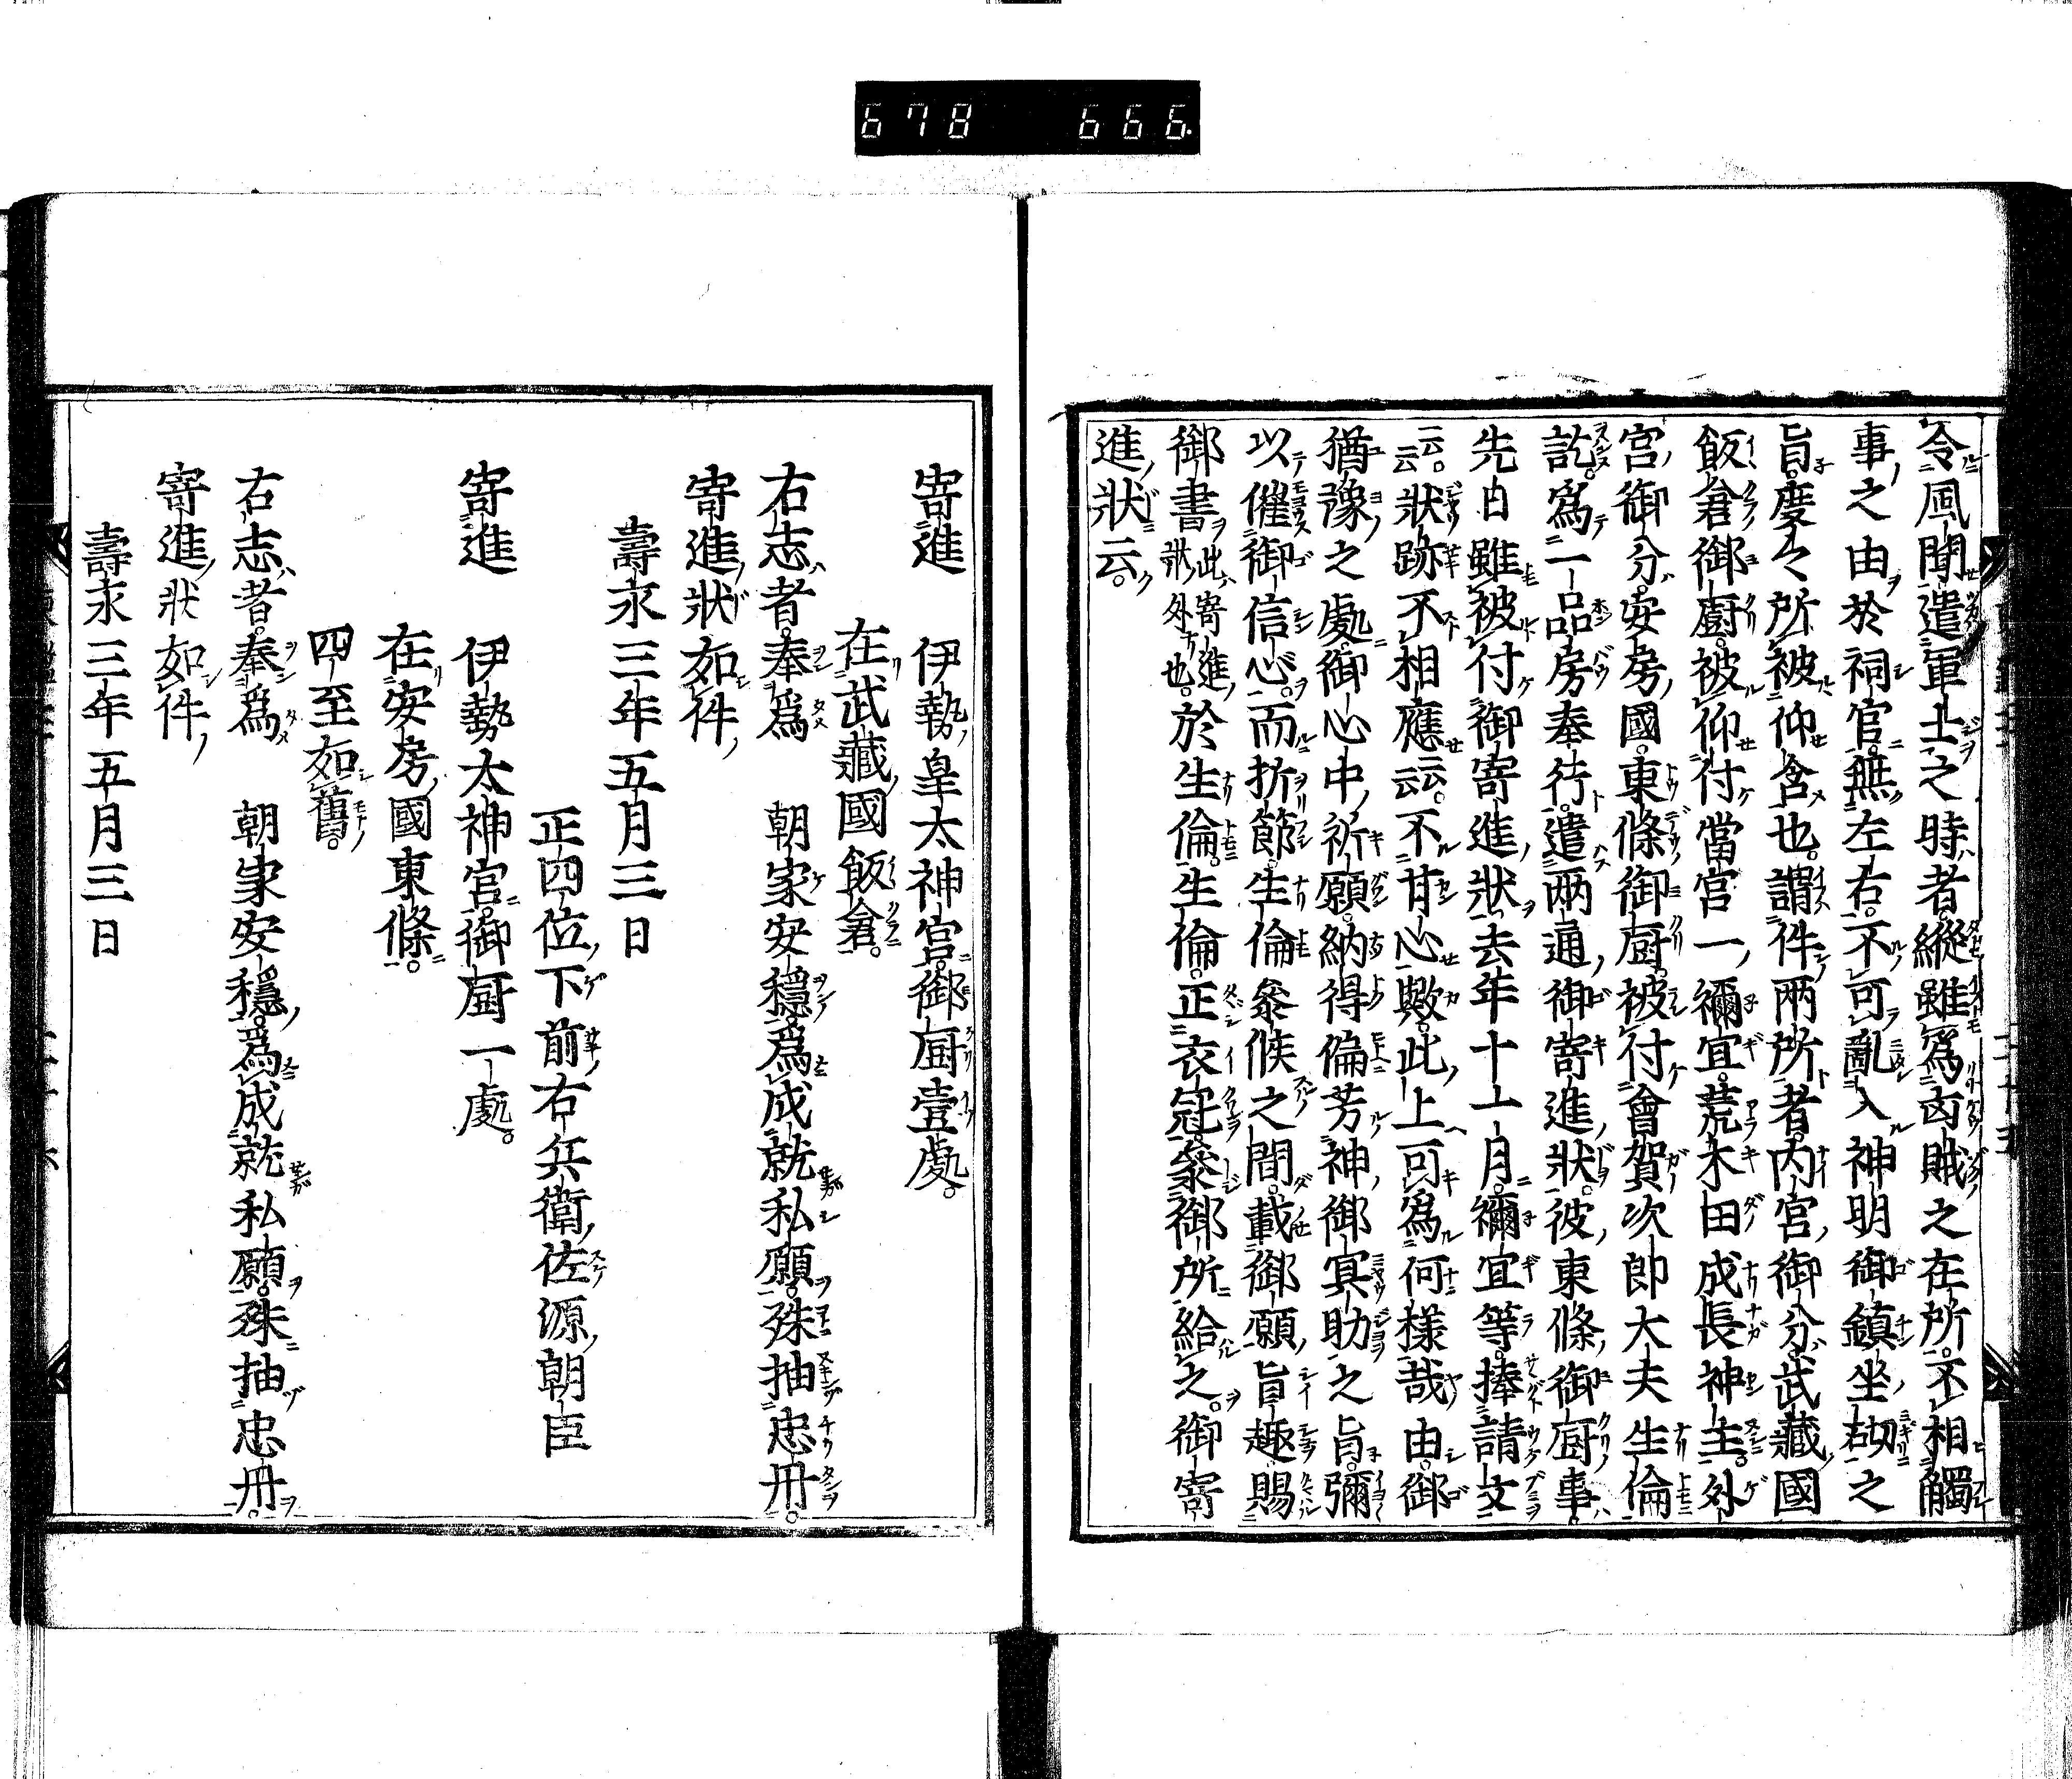 678 666
令風聞遣軍士之時者縱雖爲凶賊之在所。不相觸
事之由於祠官。無左右。不可亂入神明御鎮坐砌之
旨。度々所被仰含也。謂件兩所者。内宮御分。武藏國
飯倉御廚。被仰付當宮一禰宜。荒木田成長神主。外
宮御分。安房國。東條御廚。被付會賀次郎大夫生倫
訖。爲一品房奉行。遣兩通御寄進狀。彼東條御廚事。
先日雖被付御寄進狀。去年十一月。禰宜等。捧請文
云云。狀跡不相應云云。不甘心歟。此上可爲何樣哉由。御
猶豫之處。御心中祈願。納得偏芳神御冥助之旨。彌
以催御信心。而折節。生倫參候之間。載御願旨趣賜
御書此寄進狀外也。於生倫。生倫。正衣冠。參御所給之。御寄
進狀云。
寄進 伊勢皇太神宮。御廚壹處。
在武藏國飯倉。
右志者。奉爲 朝家安穩。爲成就私願。殊抽忠丹。
寄進狀如件
壽永三年五月三日
正四位下前右兵衞佐源朝臣
寄進 伊勢太神宮。御廚一處。
在安房國東條。
四至如舊。
右志者。奉爲 朝家安穩。爲成就私願。殊抽忠丹。
寄進狀如件
壽永三年五月三日